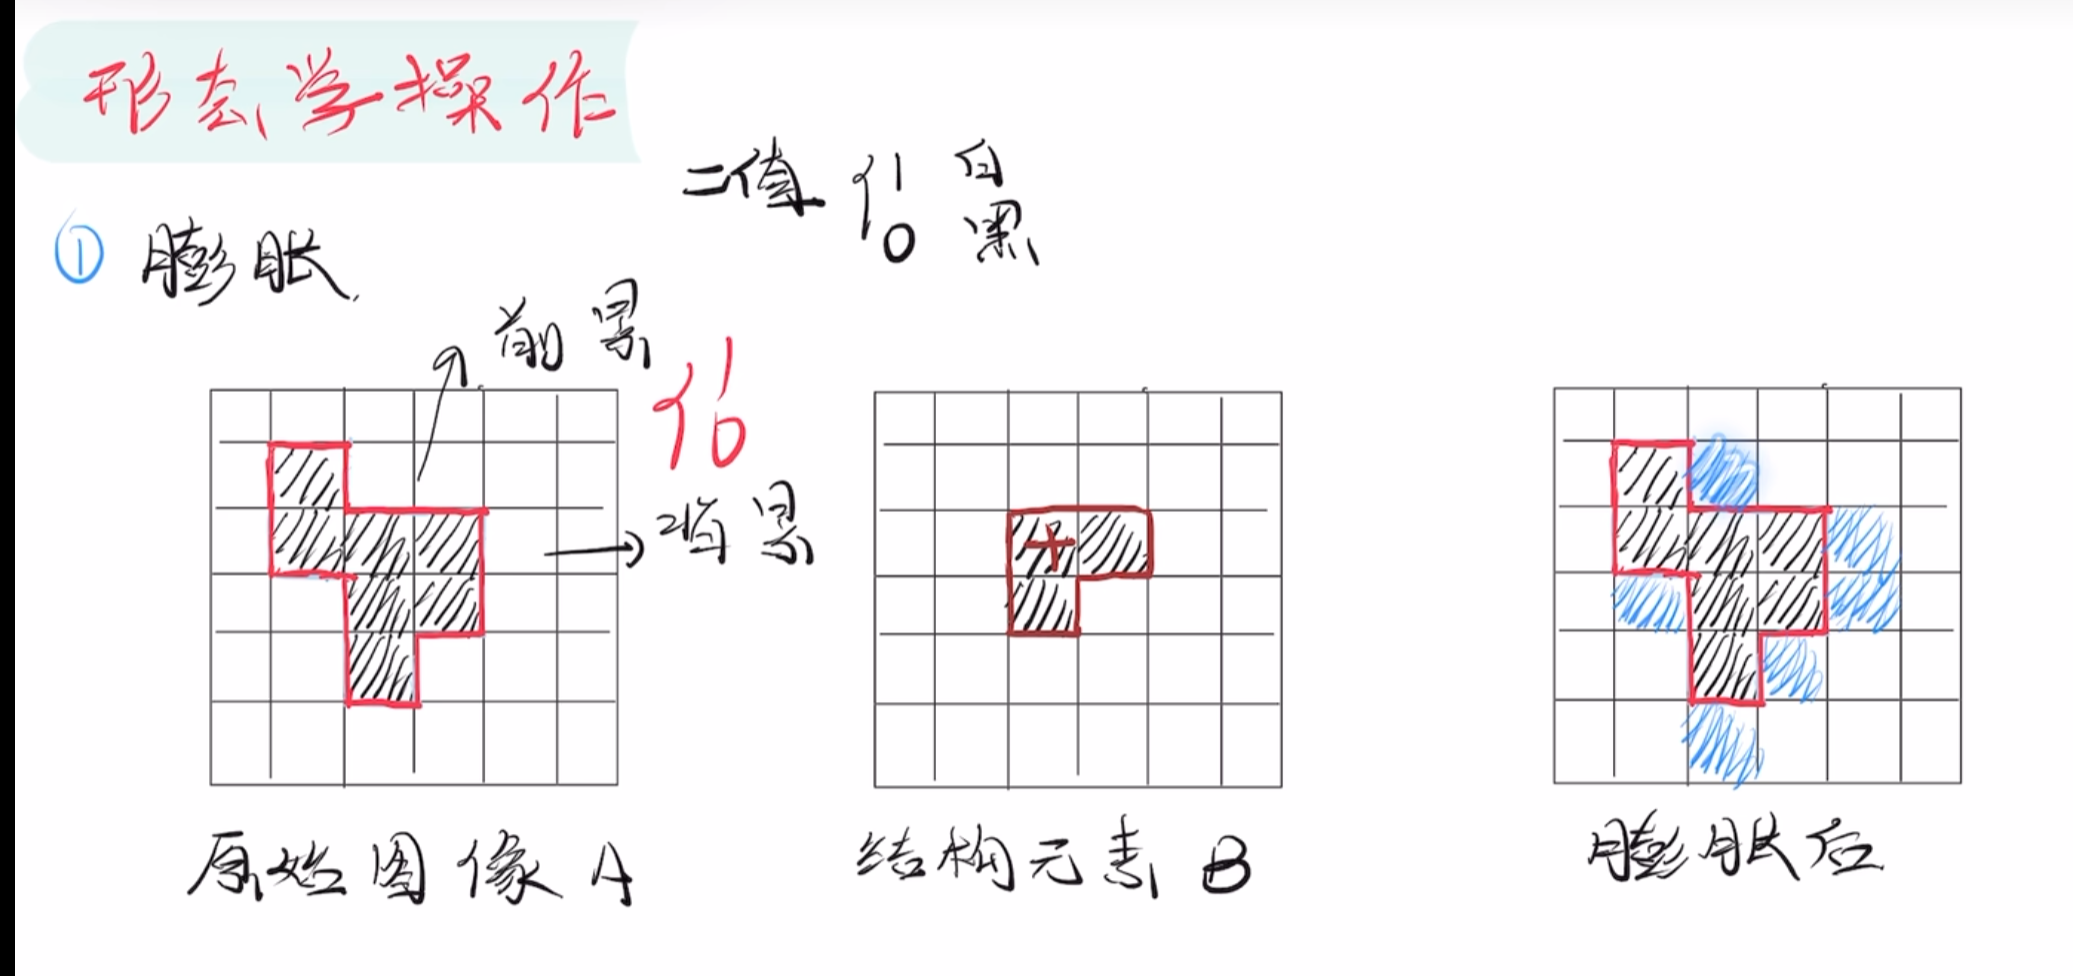 形态学操作
二值 { 1 白
0 黑
① 膨胀
前景
{ 1
0
背景
原始图像 A
结构元素 B
膨胀后